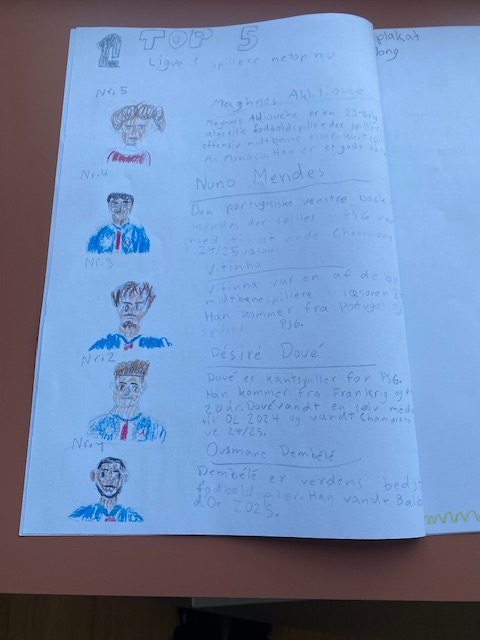 TOP 5
Ligue 1 spillere netop nu
Nr. 5
Maghnes Akliouche
Maghnes Akliouche er en 23-årig
algerisk fodboldspiller der spiller
offensiv midtbane eller kant
As Monaco. Han er et godt
Nr. 4
Nuno Mendes
Den portugisiske venstre back
Mendes der spiller i PSG var
med til at vinde Champion
24/25
Nr. 3
Vitinha
Vitinha var en af de be
midtbanespillere i sæsonen 2
Han kommer fra Portugal og
spiller PSG.
Nr. 2
Désiré Doué
Doué er kantspiller for PSG.
Han kommer fra Frankrig og er
20 år. Doué vandt en sølv med
til OL 2024 og vandt Champion
24/25.
Nr. 1
Ousmane Dembélé
Dembélé er verdens beds
fodboldspiller. Han vandt Ballo
d'Or 2025.
plakat